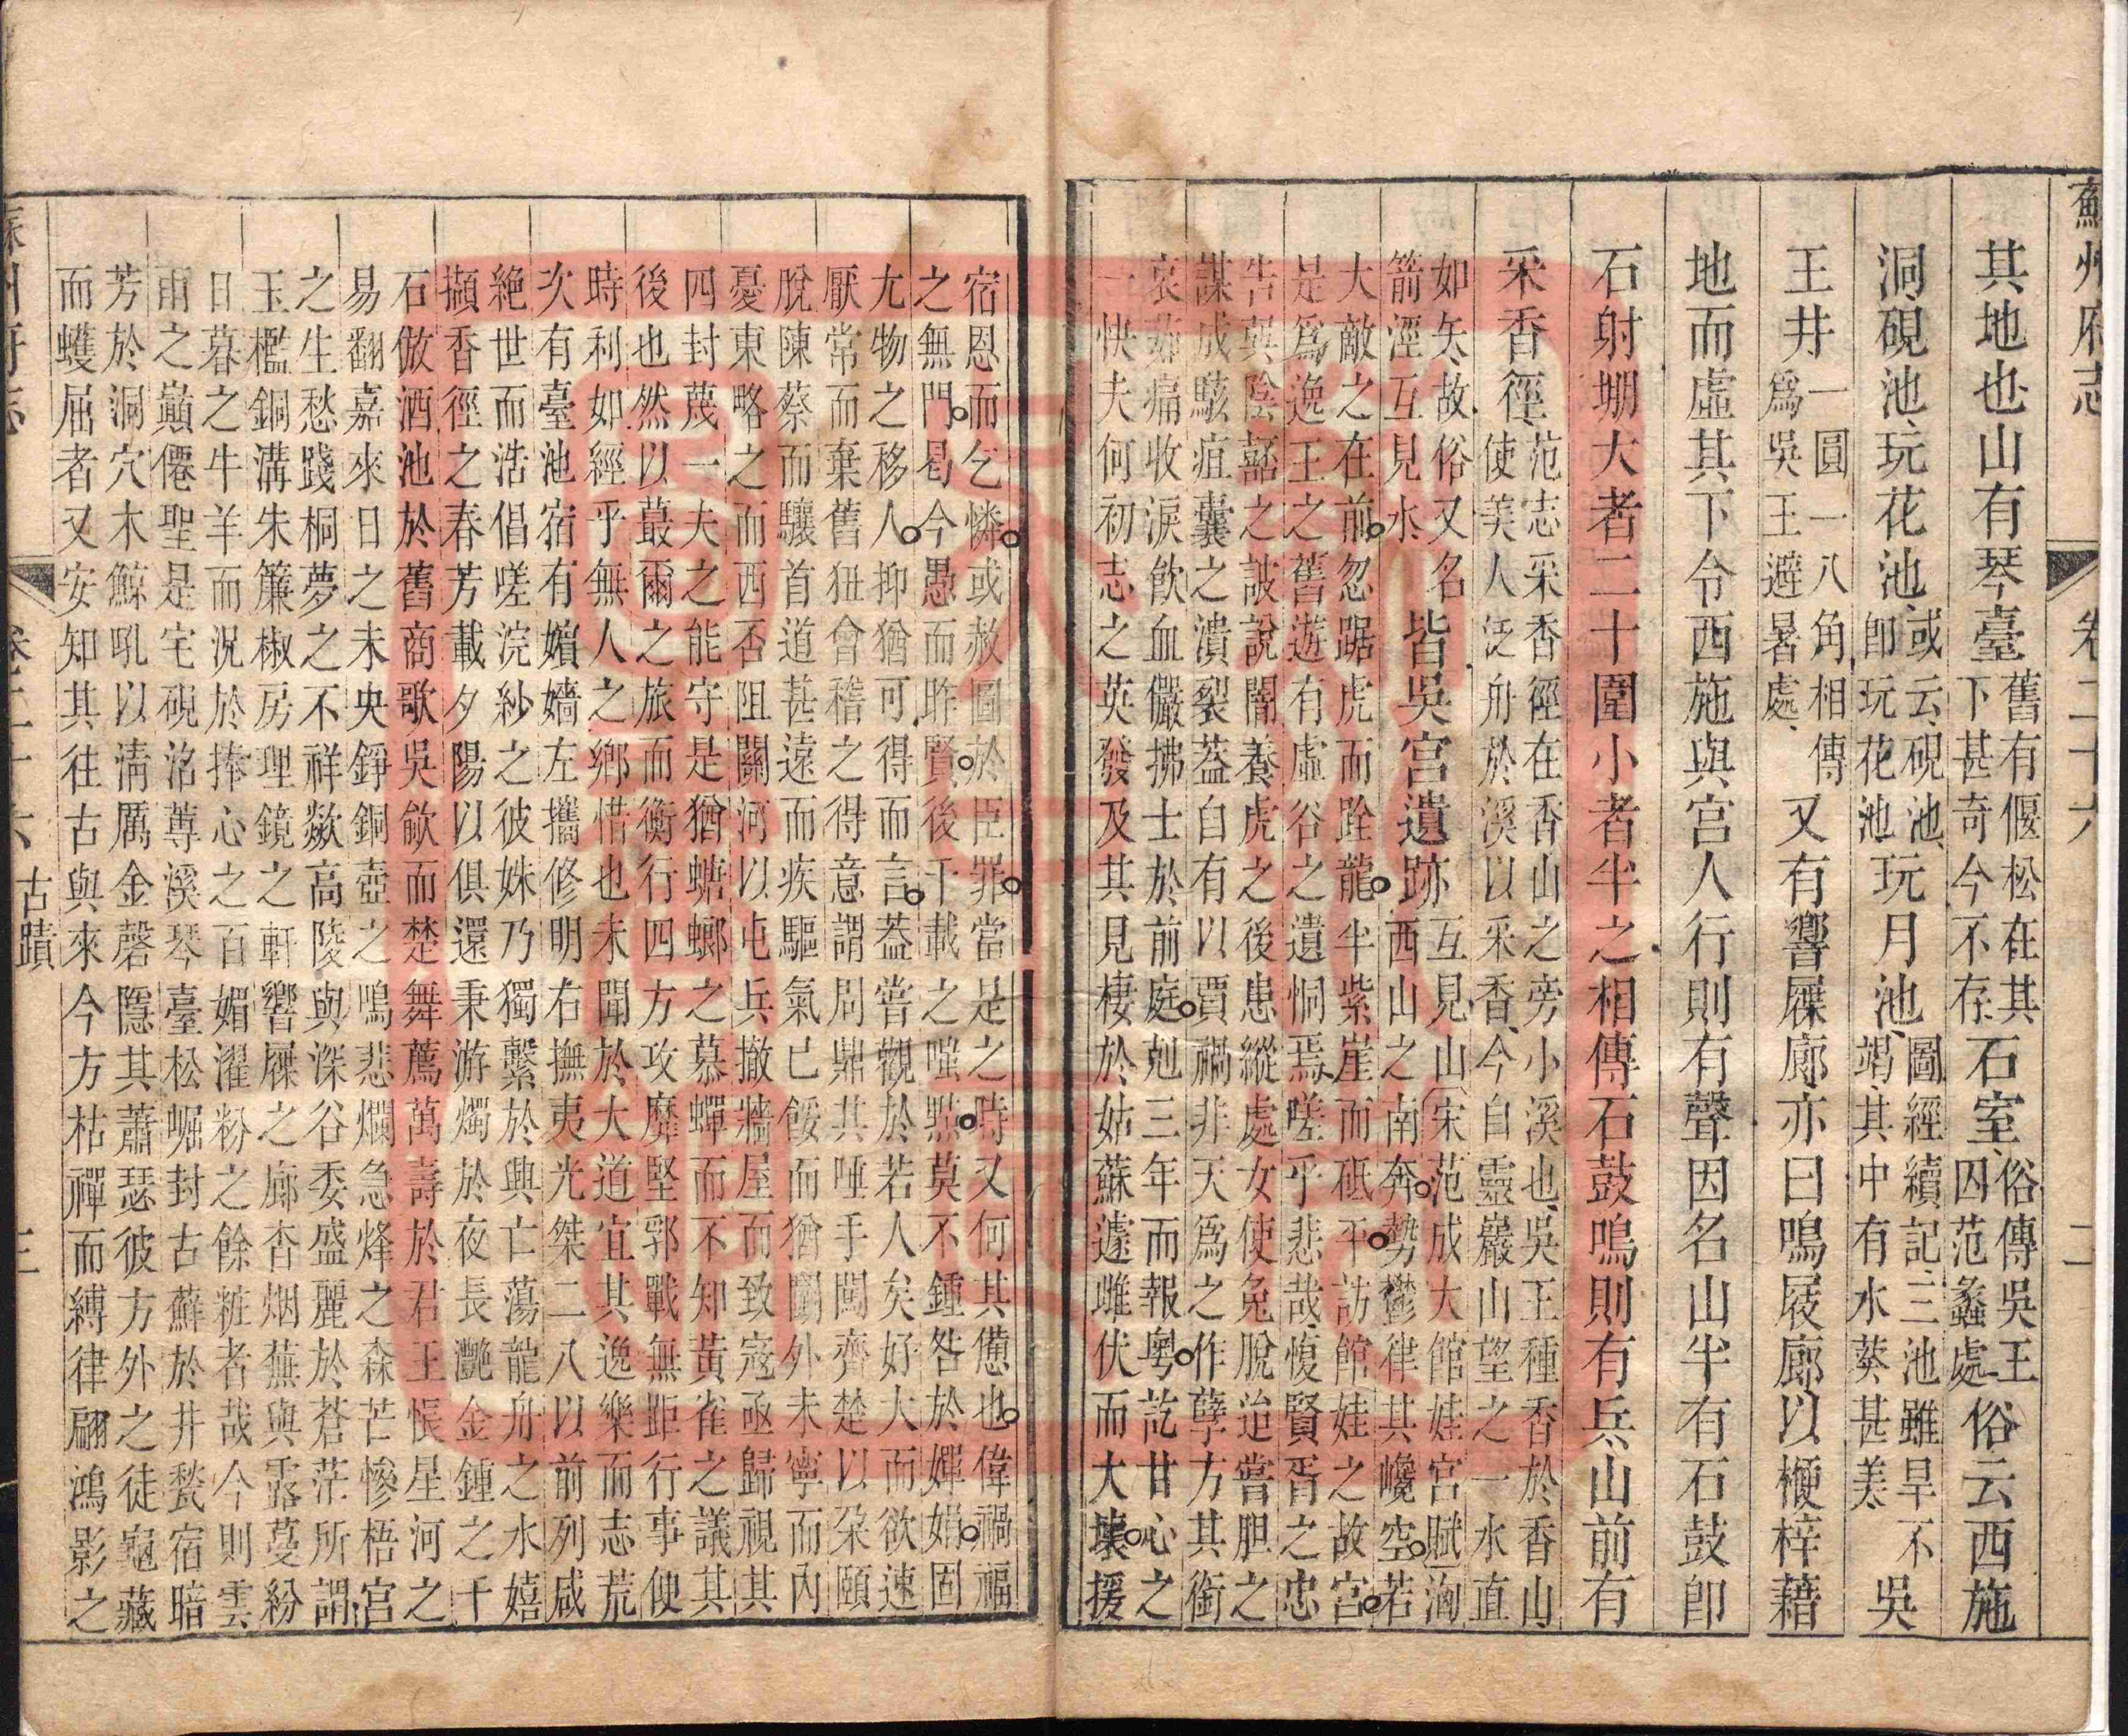 蘇州府志 卷二十六 二
其地也山有琴臺
舊有偃松在其
下甚奇今不存
石室
俗傳吳王
囚范蠡處
俗云西施
洞硯池玩花池
或云硯池
卽玩花池
玩月池
圖經續記三池雖旱不
竭其中有水葵甚美
吳
王井
一圓一八角相傳
爲吳王避暑處
又有響屧廊亦曰鳴屐廊以楩梓藉
地而虛其下令西施與宮人行則有聲因名山半有石鼓卽
石射堋大者二十圍小者半之相傳石鼓鳴則有兵山前有
采香徑
范志采香徑在香山之旁小溪也吳王種香於香山
使美人泛舟於溪以采香今自靈巖山望之一水直
如矢故俗又名
箭涇互見水
皆吳宮遺跡
互見山宋范成大館娃宮賦洶
西山之南奔勢鬱律其巉空若
大敵之在前忽踞虎而跧龍半紫崖而砥平訪館娃之故宮
是爲逸王之舊遊有虛谷之遺恫焉嗟乎悲哉愎賢胥之忠
告與陰嚭之詖說闇養虎之後患縱處女使兔脫迨嘗胆之
謀成駭疽囊之潰裂葢自有以賈禍非天爲之作孽方其銜
哀茹痛收淚飲血儼拂士於前庭剋三年而報粤訖甘心之
一快夫何初志之英發及其見棲於姑蘇遽雌伏而大壞援
宿恩而乞憐或赦圖於臣罪當是之時又何其憊也偉禍福
之無門曷今愚而昨賢後千載之嗤點莫不鍾咎於嬋娟固
尤物之移人抑猶可得而言葢嘗觀於若人矣好大而欲速
厭常而棄舊狃會稽之得意謂周鼎其唾手闖齊楚以朶頤
脫陳蔡而驤首道甚遠而疾驅氣已餒而猶鬭外未寧而內
憂東略之而西否阻關河以屯兵撤牆屋而致寇亟歸視其
四封蔑一夫之能守是猶螗螂之慕蟬而不知黃雀之議其
後也然以蕞爾之旅而衡行四方攻靡堅郛戰無距行事便
時利如經乎無人之鄉惜也未聞於大道宜其逸樂而志荒
次有臺池宿有嬪嬙左攜修明右撫夷光桀二八以前列咸
絶世而浩倡嗟浣紗之彼姝乃獨繫於興亡蕩龍舟之水嬉
擷香徑之春芳載夕陽以俱還秉游燭於夜長灔金鍾之千
石倣酒池於舊商歌吳歈而楚舞薦萬壽於君王悵星河之
易翻嘉來日之未央錚銅壺之鳴悲爛急烽之森芒慘梧宮
之生愁踐桐夢之不祥歘高陵與深谷委盛麗於蒼茫所謂
玉檻銅溝朱簾椒房理鏡之軒響屧之廊杳烟蕪與露蔓紛
日暮之牛羊而況於捧心之百媚濯粉之餘粧者哉今則雲
雨之巔僊聖是宅硯洺蓴溪琴臺松崛封古蘚於井甃宿暗
芳於洞穴木鯨吼以淸厲金磬隱其蕭瑟彼方外之徒龜藏
而蠖屈者又安知其往古與來今方枯禪而縛律翩鴻影之
古蹟 三